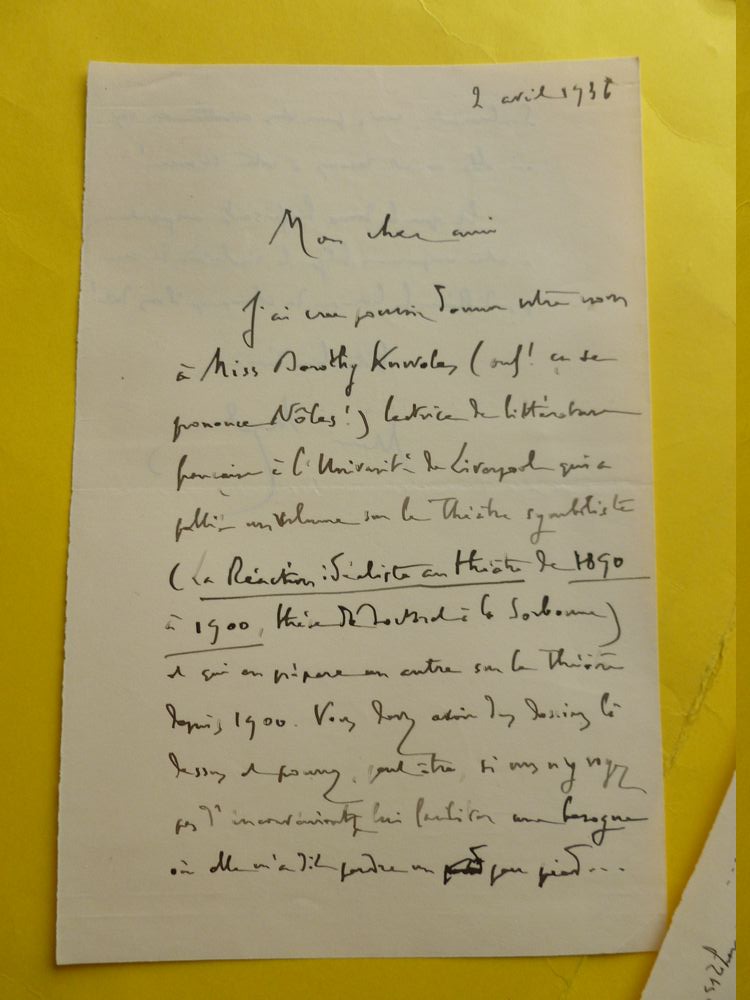 2 avril 1936
Mon cher ami
J'ai cru pouvoir donner votre nom
à Miss Dorothy Knowles (ouf! ça se
prononce Nôles!) lectrice de littérature
française à l'Université de Liverpool qui a
publié un volume sur le théâtre symboliste
(La Réaction idéaliste au théâtre de 1890
à 1900, thèse de doctorat à la Sorbonne)
et qui en prépare un autre sur le théâtre
depuis 1900. Vous devez avoir des dossiers là
dessus et pourrez, peut-être, si vous n'y voyez
pas d'inconvénients, lui faciliter une besogne
où elle m'a dit perdre un peu pied...